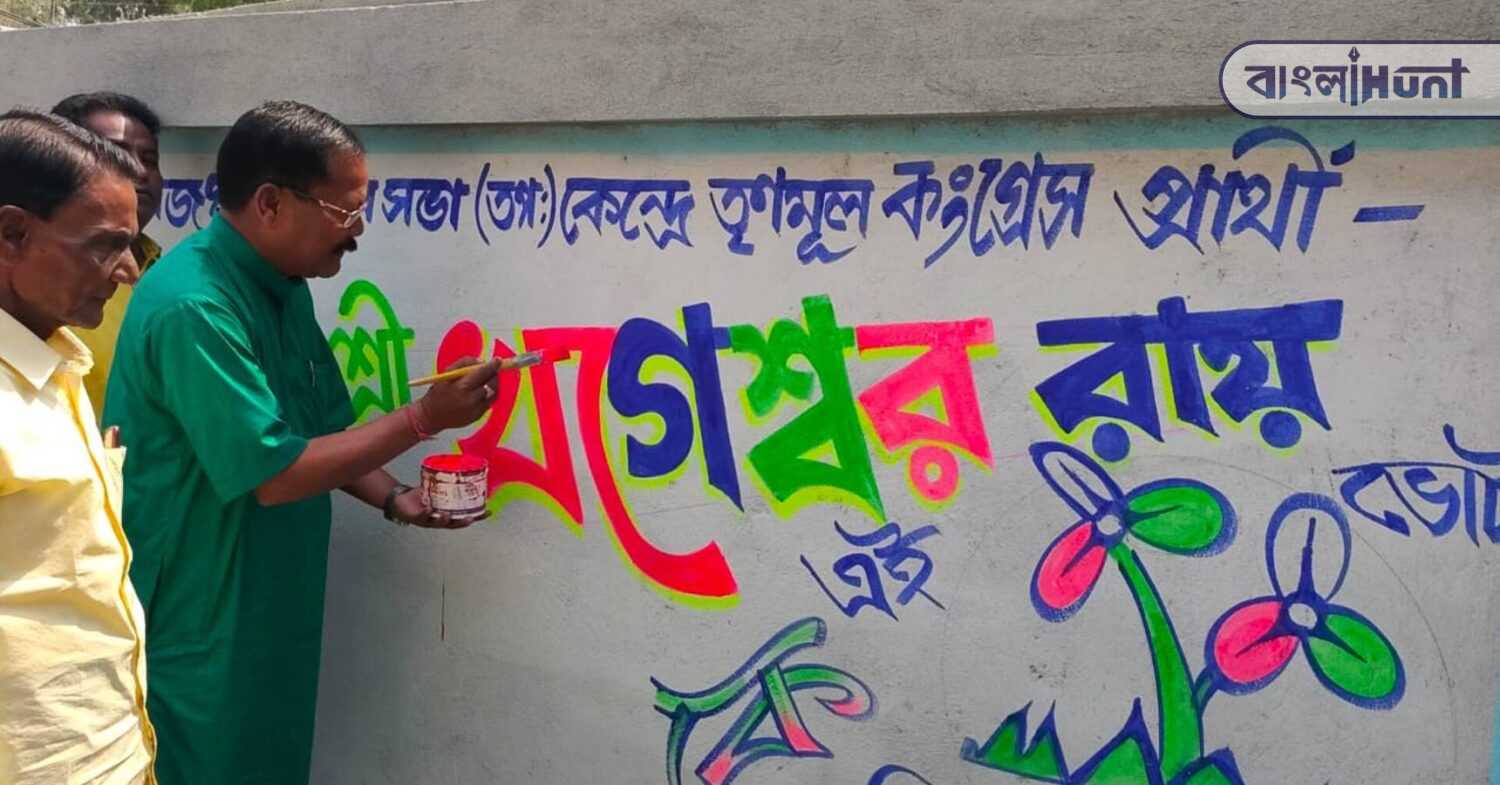 বাংলাHunt
সভা (তপঃ) কেন্দ্রে তৃণমূল কংগ্রেস প্রার্থী –
শ্রী খগেশ্বর রায়
এই